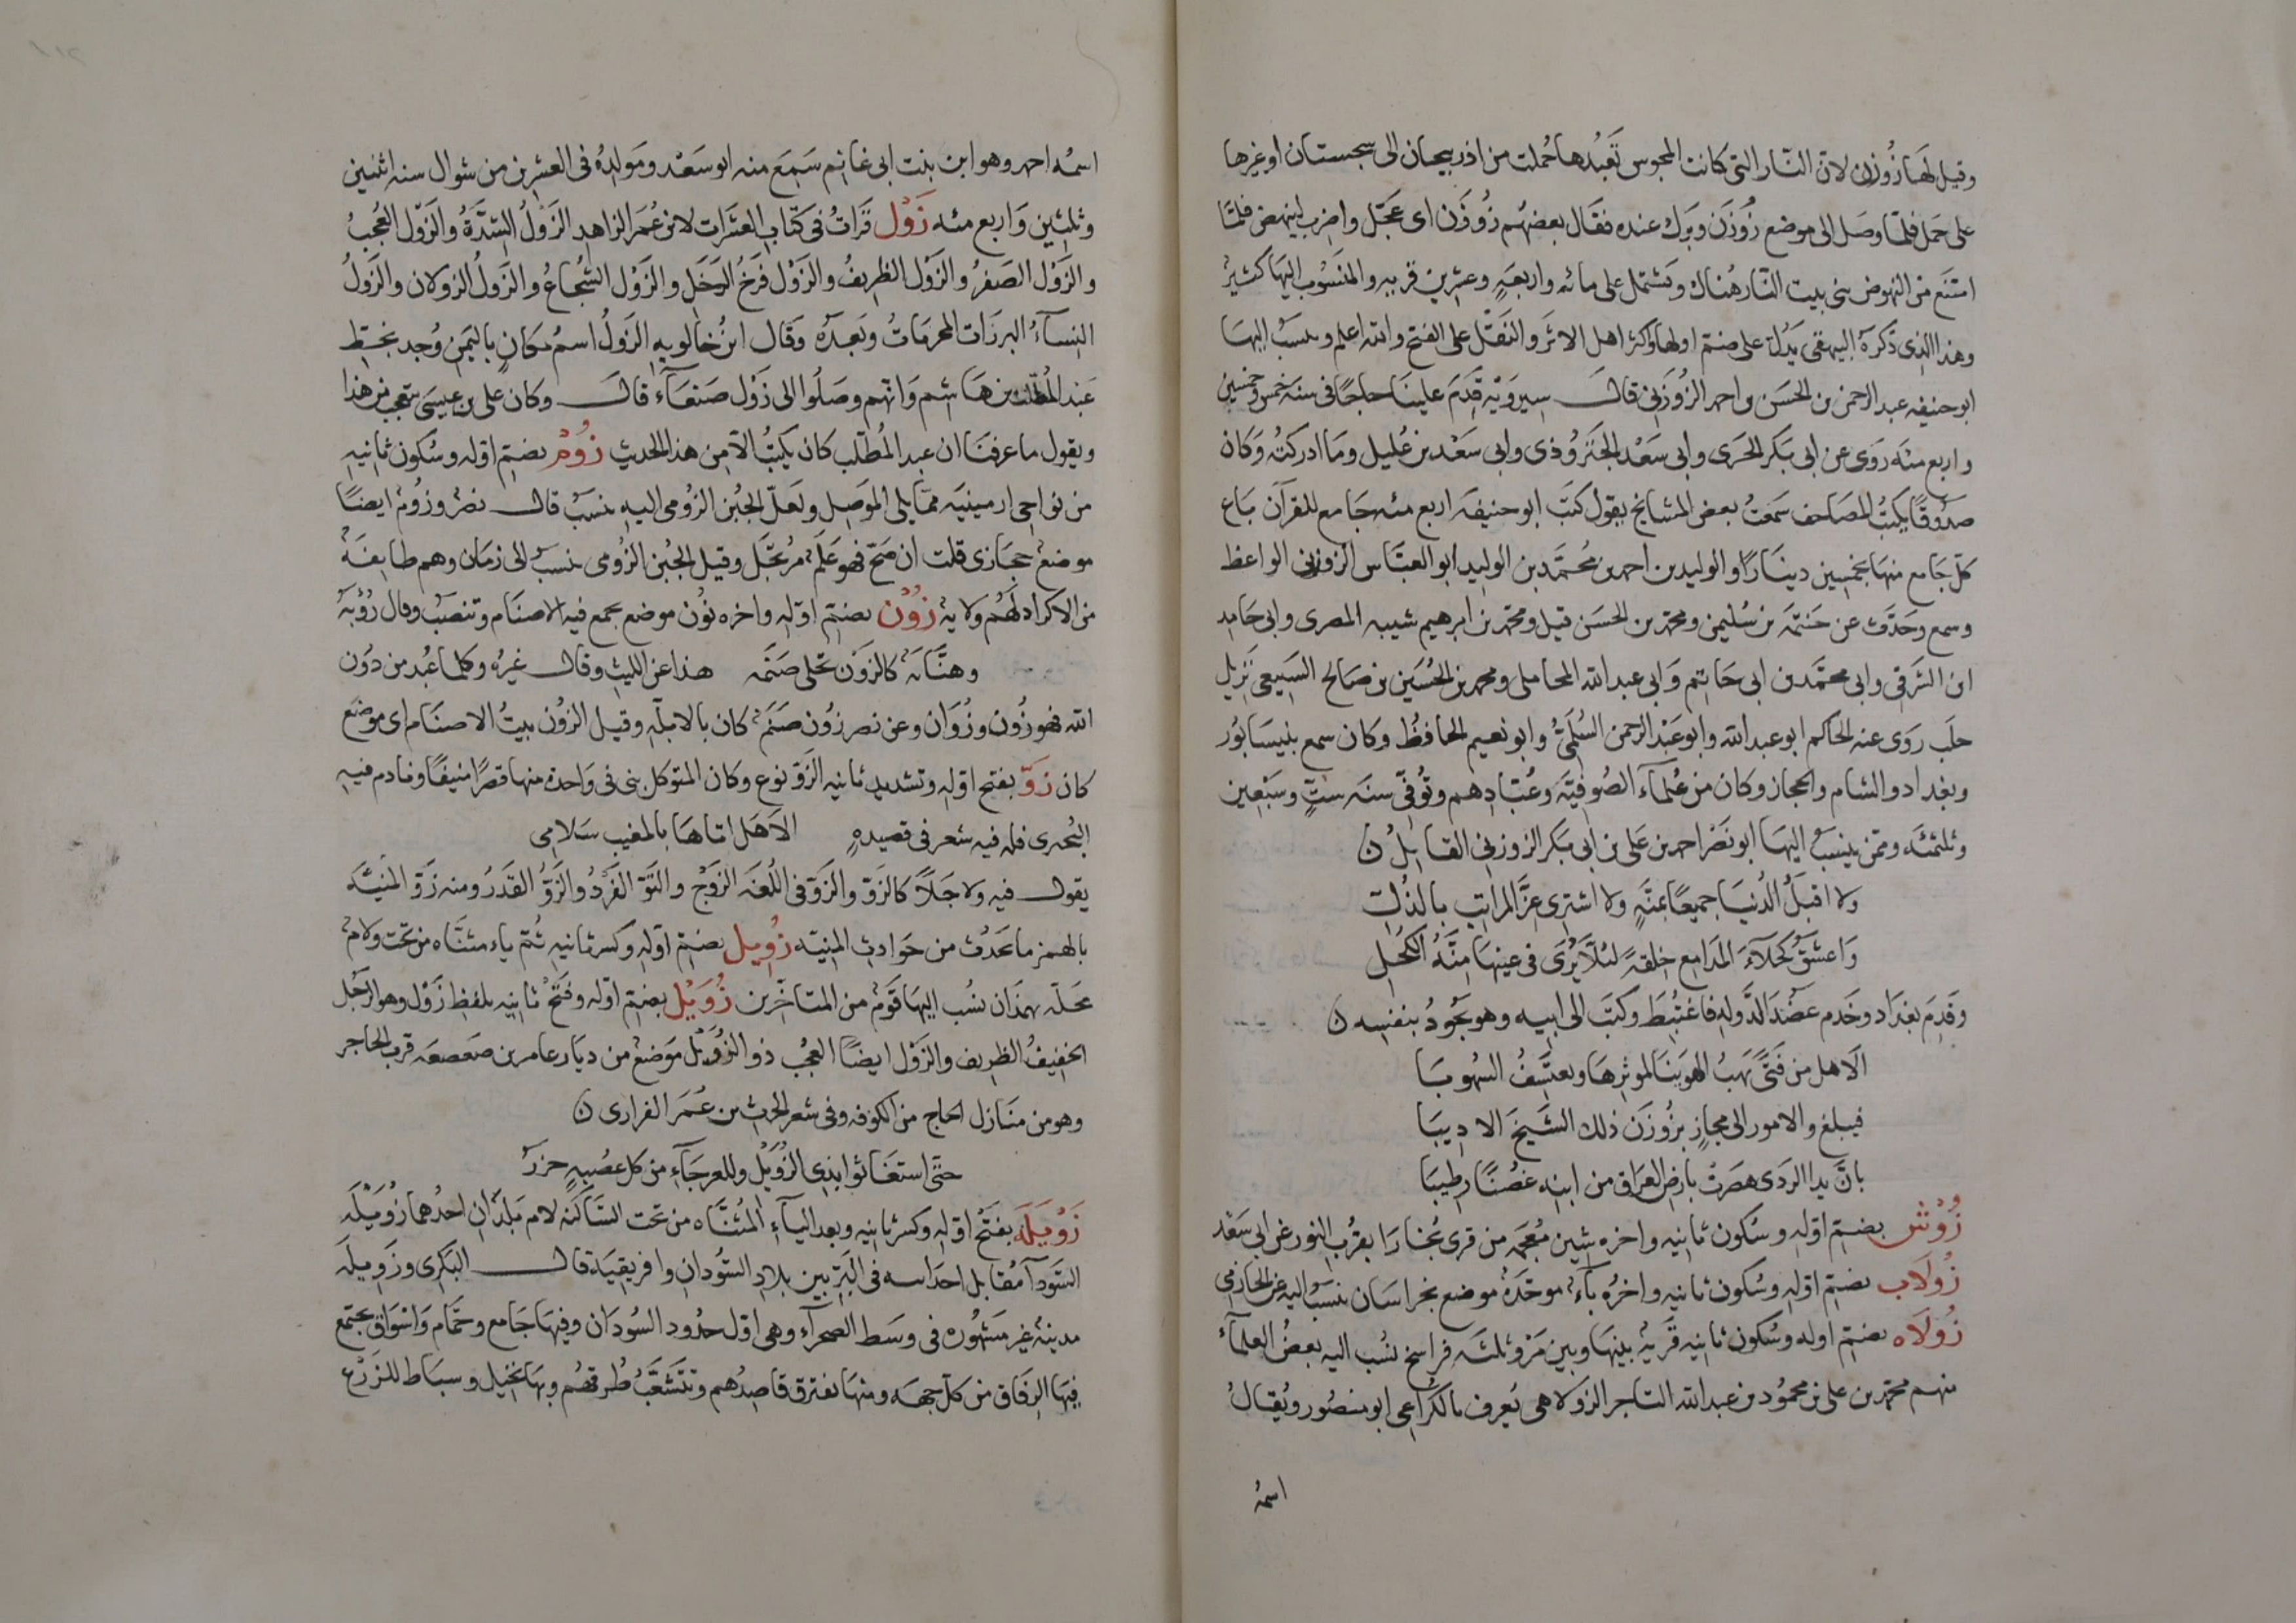 وقيل لها زوزن لان النار التي كانت المجوس تعبدها حملت من اذربيجان الى سجستان اوغيرها
على جمل فلما وصل الى موضع زوزن وبرك عنده فقال بعضهم زوزن اى عجل واضرب لينهض فلما
امتنع من النهوض بنى بيت النار هناك وتشتمل على مائه واربعة وعشرين قريه والمنسوب اليها كثير
وهذا الذى ذكره البيهقى يدل على ضم اولها واكثر اهل الاثر والنقل على الفتح والله اعلم وينسب اليها
ابو حنيفه عبد الرحمن بن الحسن واحمد الزوزنى قال سيرويه قدم علينا حاجا فى سنه خمس وخمسين
واربع مئه روى عن ابى بكر الحرى وابى سعد الجنزوذى وابى سعد بن عليل وما ادركته وكان
صدوقا يكتب المصاحف سمعت بعض المشايخ يقول كتب ابو حنيفه اربع مئه جامع للقرآن باع
كل جامع منها بخمسين دينارا والوليد بن احمد بن محمد بن الوليد ابو العباس الزوزنى الواعظ
وسمع وحدث عن خيثمه بن سليمن ومحمد بن الحسن قيل ومحمد بن ابرهيم شيبه المصرى وابى حامد
ابن الشرقى وابى محمد بن ابى حاتم وابى عبد الله المحاملى ومحمد بن الحسين بن صالح السبيعى نزيل
حلب روى عنه الحاكم ابو عبد الله وابو عبد الرحمن السلمى وابو نعيم الحافظ وكان سمع بنيسابور
وبغداد والشام والحجاز وكان من علماء الصوفية وعبادهم وتوفى سنه ست وسبعين
وثلثمئه وممن ينسب اليها ابو نصر احمد بن على بن ابى بكر الزوزنى القايل ن
ولا اقبل الدنيا جميعا بمنة ولا اشترى عز المراتب بالذل
واعشق كحلاء المدامع خلقة لئلا يرى فى عينها منة الكحل
وقدم بغداد وخدم عضد الدوله فاغتبط وكتب الى ابيه وهو يجود بنفسه ن
الا هل من فتى يهب الهوينا لموثرها ويعتسف السهوبا
فيبلغ والامور الى مجاز بزوزن ذلك الشيخ الاديبا
بان يدا الردى هصرت بارض العراق من ابنه غصنا رطيبا
زوش بضم اوله وسكون ثانيه واخره شين معجمه من قرى بخارا بقرب النور عن ابى سعد
زولاب بضم اوله وسكون ثانيه واخره باء موحدة موضع بخراسان ينسب اليه عن الحازمى
زولاه بضم اوله وسكون ثانيه قرية بينها وبين مرو ثلثه فراسخ نسب اليه بعض العلماء
منهم محمد بن على بن محمود بن عبد الله التاجر الزولاهى يعرف بالكراعى ابو منصور ويقال
اسمه
اسمه احمد وهو ابن بنت ابى غانم سمع منه ابو سعد ومولده فى العشرين من شوال سنه اثنين
وثلثين واربع مئه زول قرات فى كتاب العشرات لابن عمر الزاهد الزول الشدة والزول العجب
والزول الصقر والزول الظريف والزول فرخ الرخل والزول الشجاع والزول الزولان والزول
النساء البرزات المحرمات وبعده وقال ابن خالويه الزول اسم مكان باليمن وجد بخط
عبد المطلب بن هاشم وانهم وصلوا الى زول صنعاء قال وكان على بن عيسى يتعجب من هذا
ويقول ما عرفنا ان عبد المطلب كان يكتب الا من هذا الحديث زوم بضم اوله وسكون ثانيه
من نواحى ارمينيه مما يلى الموصل ولعل الجبن الزومى اليه ينسب قال نصر وزوم ايضا
موضع حجازى قلت ان صح فهو علم مرتجل وقيل الجبن الزومى ينسب الى زمان وهم طايفة
من الاكراد لهم ولاية زون بضم اوله واخره نون موضع يجمع فيه الاصنام وتنصب وقال رؤبه
وهنانه كالزون تجلى صنمه هذا عن الليث وقال غيره وكلما عبد من دون
الله فهو زون وزوان وعن نصر زون صنم كان بالابله وقيل الزون بيت الاصنام اى موضع
كان زو بفتح اوله وتشديد ثانيه الزو نوع وكان المتوكل بنى فى واحدة منها قصرا منيفا ونادم فيه
البحترى فله فيه شعر فى قصيده الا هل اتاها بالمغيب سلامى
يقول فيه ولا جبلا كالزو والزو فى اللغه الزوج والتو الفرد والزو القدر ومنه زو المنيه
بالهمز ما تحدث من حوادث المنيه زويل بضم اوله وكسر ثانيه ثم ياء مثناه من تحت ولام
محله بهمذان نسب اليها قوم من المتاخرين زويل بضم اوله وفتح ثانيه بلفظ زول وهو الرجل
الخفيف الظريف والزول ايضا العجب ذو الزويل موضع من ديار عامر بن صعصعه قرب الحاجر
وهو من منازل الحاج من الكوفه وفى شعر الحرث بن عمر الفزارى ن
حتى استغاثوا بذى الزويل وللعرجاء من كل عصبة جزر
زويله بفتح اوله وكسر ثانيه وبعد الياء المثناه من تحت الساكنه لام بلدان احدهما زويله
السودا مقابل اجدابيه فى البر بين بلاد السودان وافريقية قال البكرى وزويله
مدينة غير مسوره فى وسط الصحراء وهى اول حدود السودان وفيها جامع وحمام واسواق يجتمع
فيها الرفاق من كل جهه ومنها يفترق قاصدهم وتتشعب طرقهم وبها نخيل وبساط للزرع